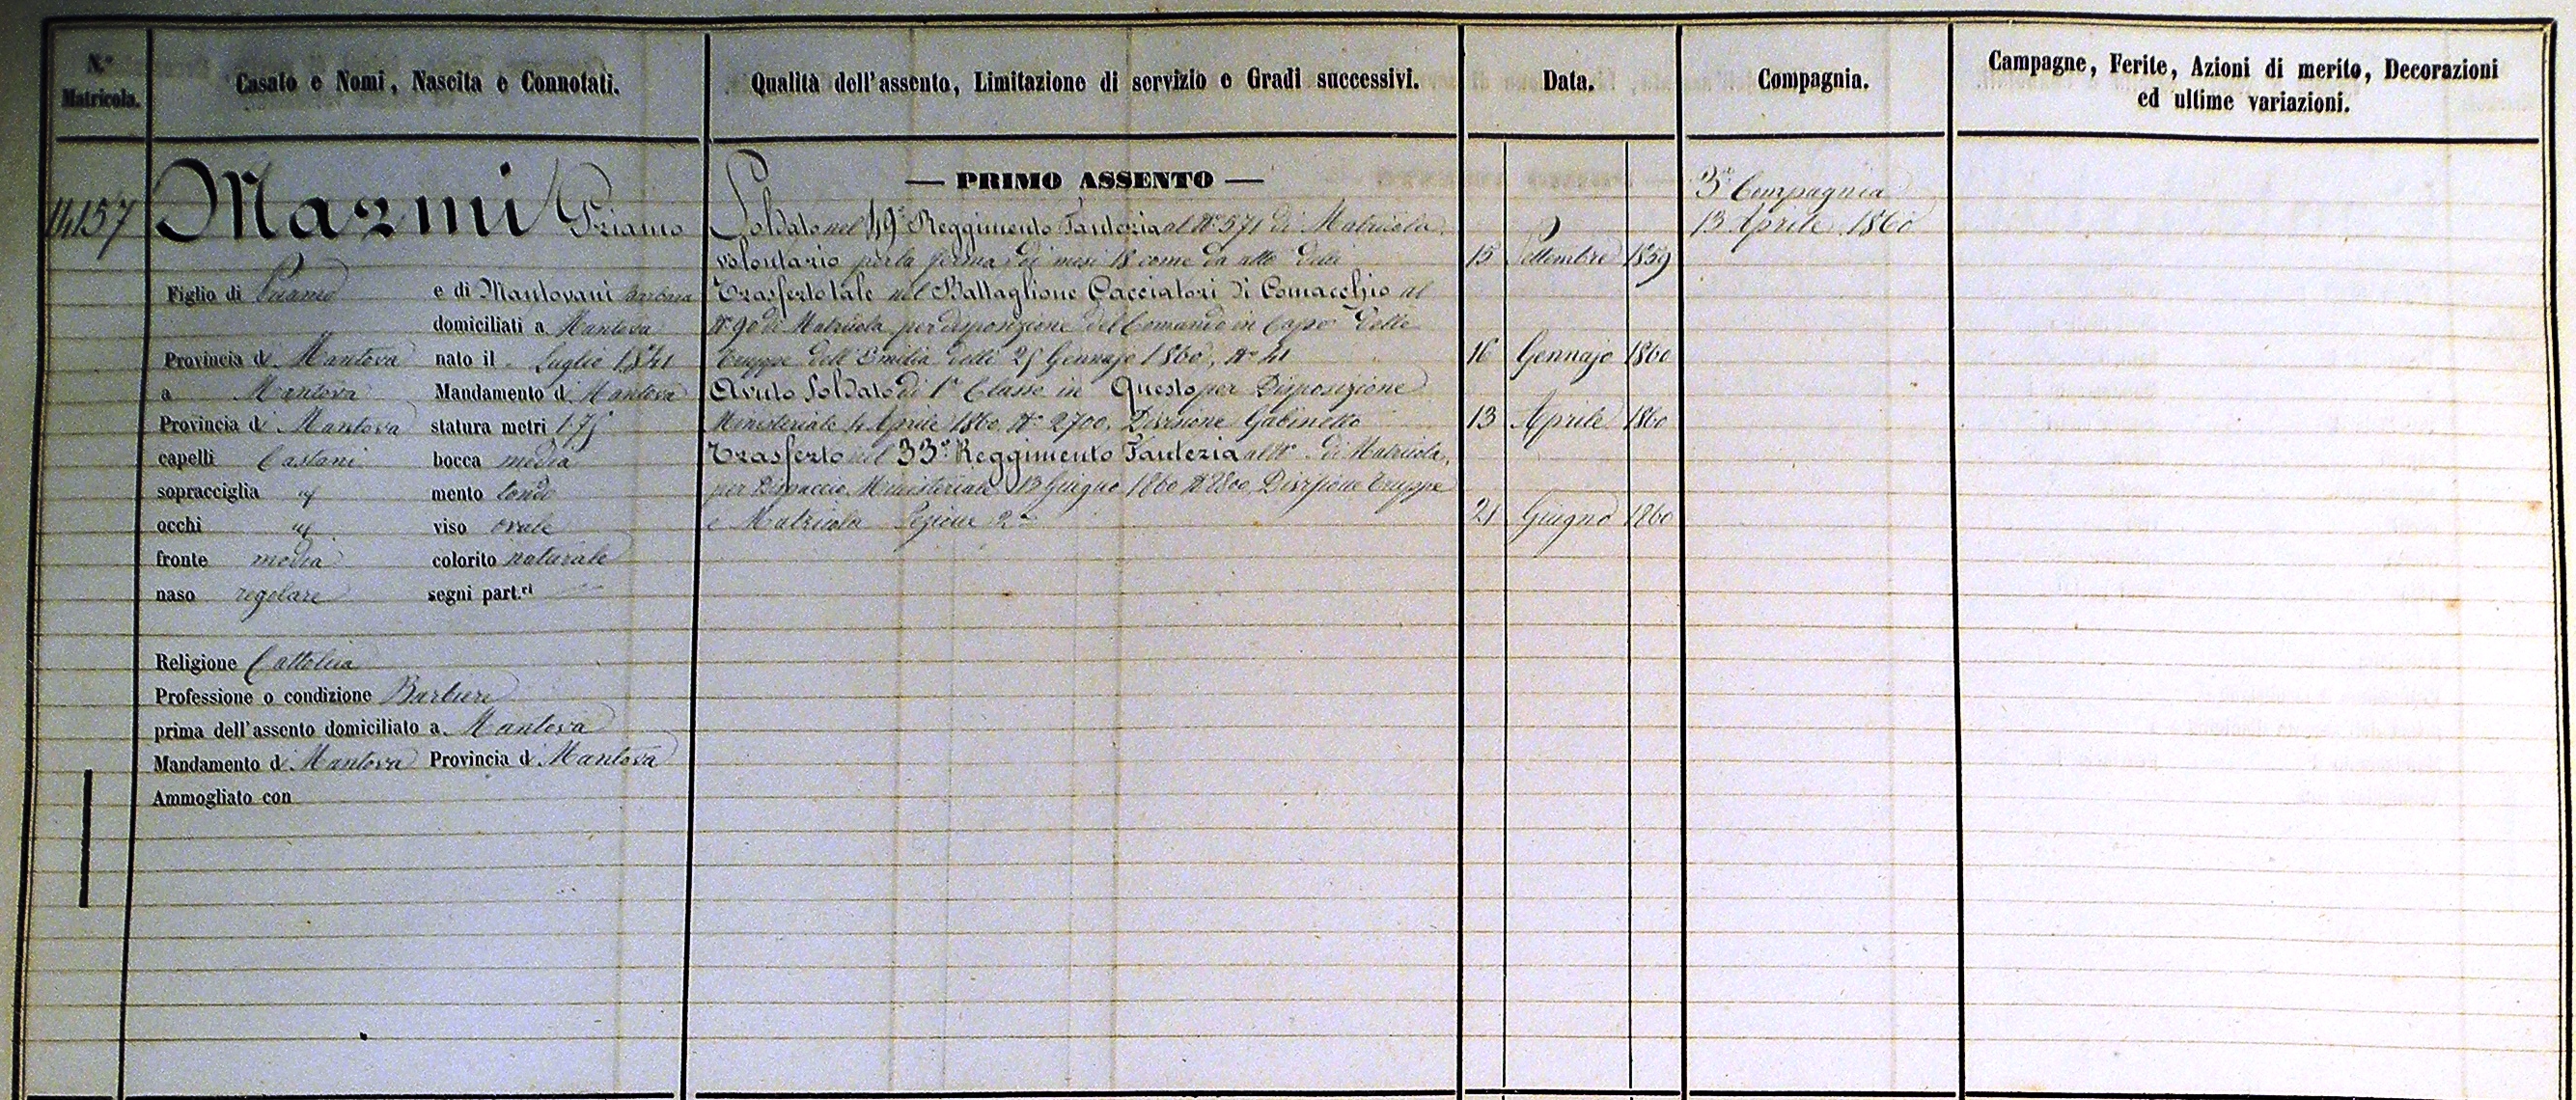 N.º Matricola.
Casato e Nomi, Nascita e Connotati.
Qualità dell'assento, Limitazione di servizio e Gradi successivi.
Data.
Compagnia.
Campagne, Ferite, Azioni di merito, Decorazioni
ed ultime variazioni.
14157
Priamo
Figlio di Priamo e di Mantovani Barbara
domiciliati a Mantova
Provincia di Mantova nato il Luglio 1841
a Mantova Mandamento di Mantova
Provincia di Mantova statura metri 1.75
capelli Castani bocca media
sopracciglia id mento tondo
occhi id viso ovale
fronte media colorito naturale
naso regolare segni part.ri
Religione Cattolica
Professione o condizione Barbiere
prima dell'assento domiciliato a Mantova
Mandamento di Mantova Provincia di Mantova
Ammogliato con
— PRIMO ASSENTO —
Soldato nel 49º Reggimento Fanteria al Nº 571 di Matricola,
volontario per la ferma di mesi 18 come da atto delli 15 Settembre 1859
Trasferto tale nel Battaglione Cacciatori di Comacchio al
Nº 90 di Matricola per disposizione del Comando in Capo delle
Truppe dell'Emilia delli 25 Gennajo 1860, Nº 41 16 Gennajo 1860
Avuto Soldato di 1ª Classe in Questo per Disposizione
Ministeriale 4 Aprile 1860 Nº 2700, Divisione Gabinetto 13 Aprile 1860
Trasferto nel 33º Reggimento Fanteria al Nº di Matricola,
per Dispaccio Ministeriale 13 Giugno 1860 Nº 8800, Divisione Truppe
e Matricola Sezione 2ª 21 Giugno 1860
3ª Compagnia
13 Aprile 1860